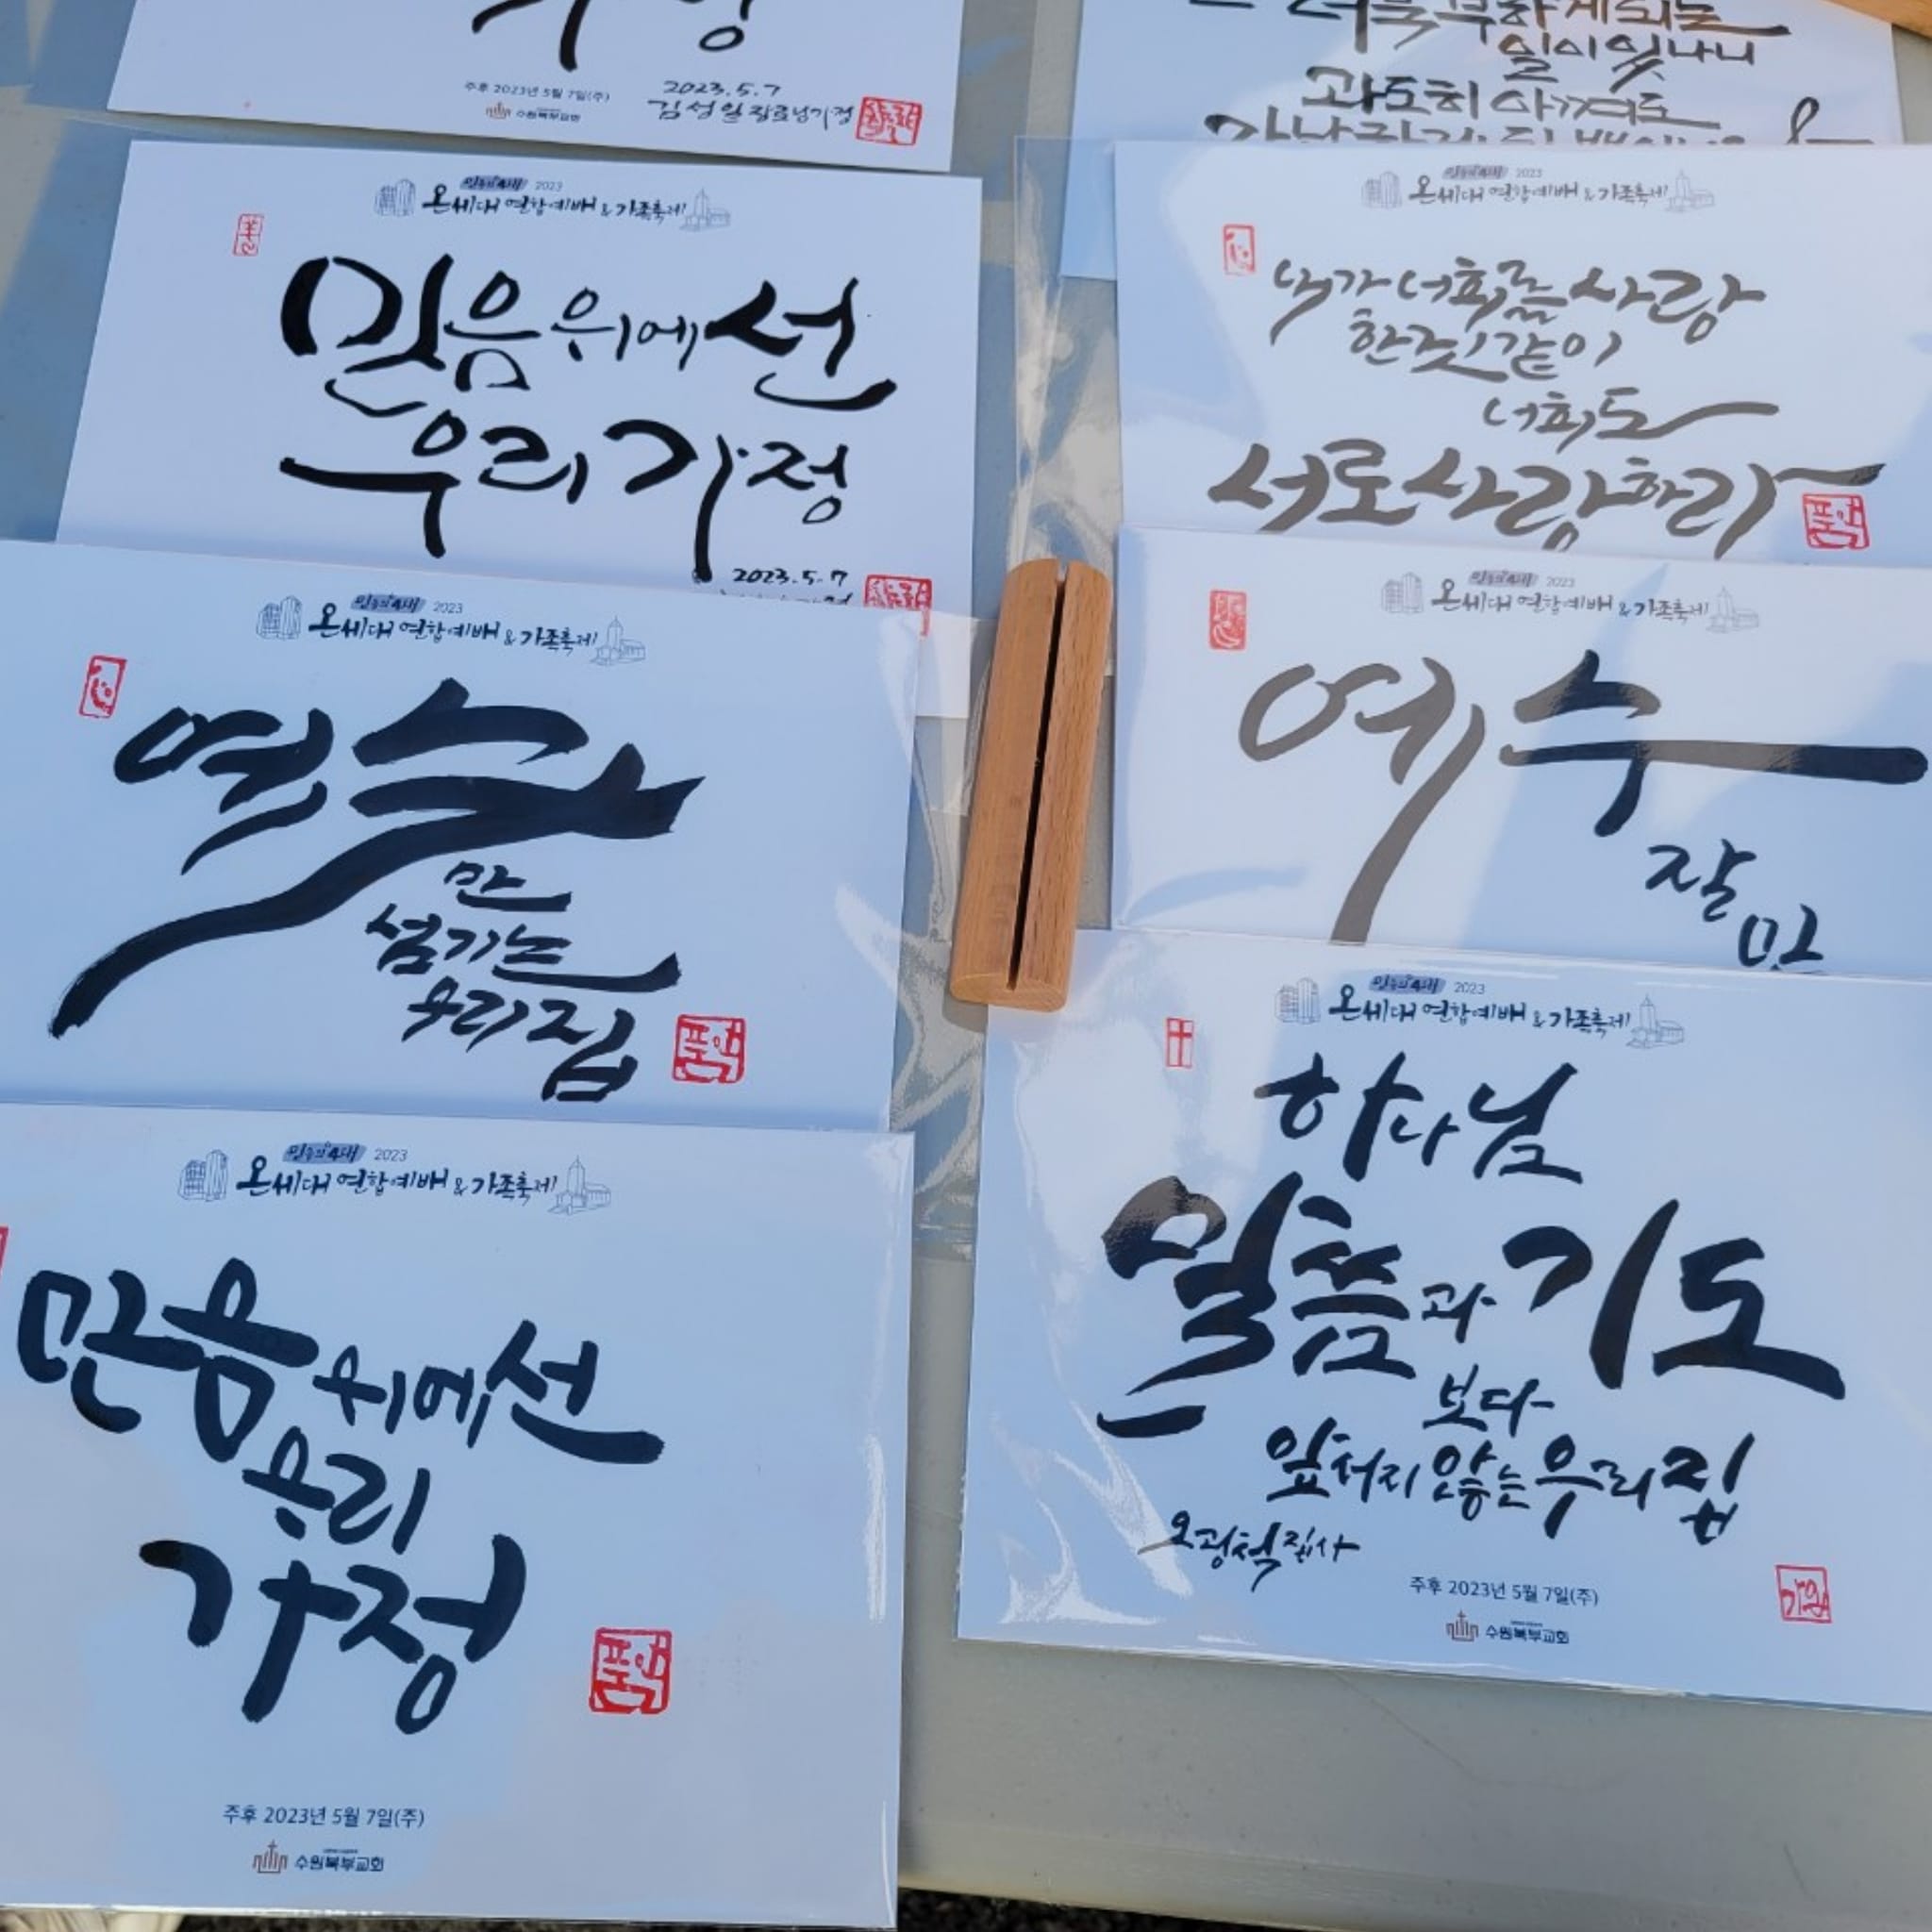 주후 2023년 5월 7일(주)
수원북부교회
2023.5.7
김성일 장로님가정
일이 있나니
과도히 아껴도
믿음의 4대 2023
온세대 연합예배 & 가족축제!
믿음 위에 선
우리 가정
2023.5.7
믿음의 4대 2023
온세대 연합예배 & 가족축제!
내가 너희를 사랑
한것 같이
너희도
서로 사랑하라
믿음의 4대 2023
온세대 연합예배 & 가족축제!
만
섬기는
우리집
믿음의 4대 2023
온세대 연합예배 & 가족축제!
예수
잘
믿
믿음의 4대 2023
온세대 연합예배 & 가족축제!
믿음 위에 선
우리
가정
주후 2023년 5월 7일(주)
수원북부교회
믿음의 4대 2023
온세대 연합예배 & 가족축제!
하나님
말씀과 기도
보다
앞서지 않는 우리집
집사
주후 2023년 5월 7일(주)
수원북부교회